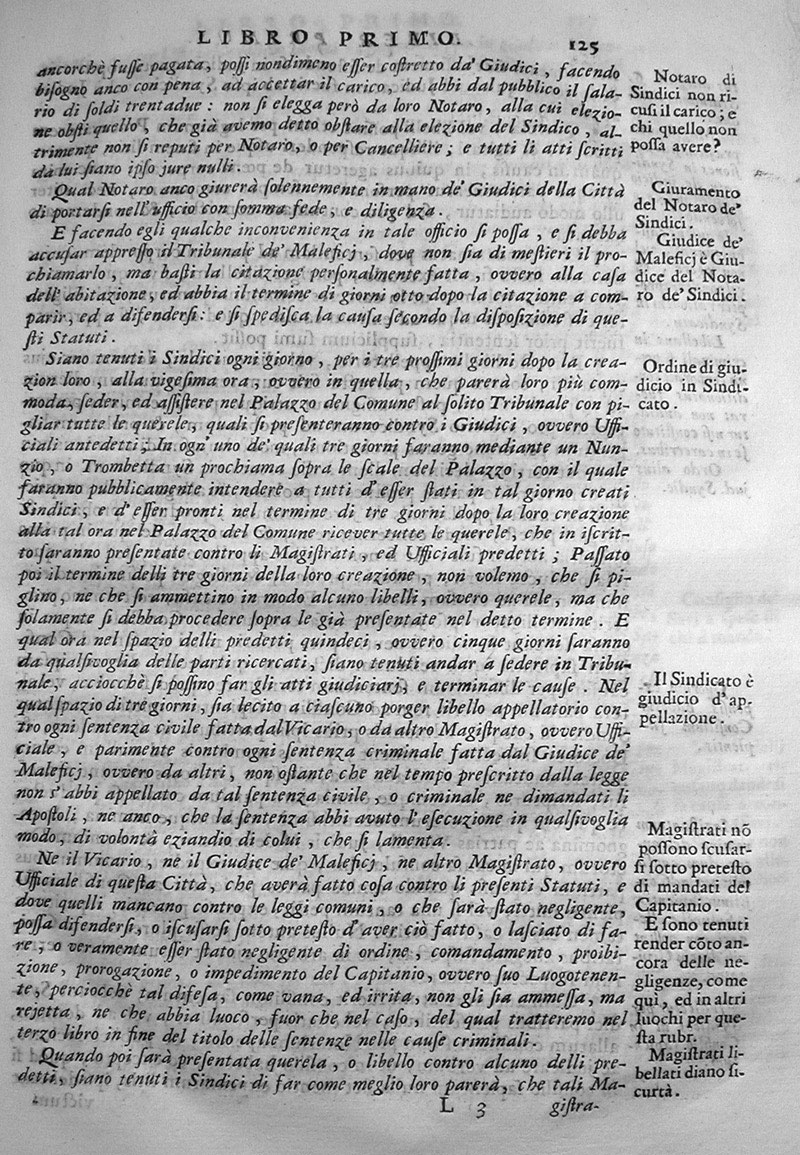 LIBRO PRIMO.
125
ancorchè fuſſe pagata, poſſi nondimeno eſſer coſtretto da' Giudici, facendo
biſogno anco con pena, ad accettar il carico, ed abbi dal pubblico il ſala-
rio di ſoldi trentadue: non ſi elegga però da loro Notaro, alla cui elezio-
ne obſti quello, che già avemo detto obſtare alla elezione del Sindico, al-
trimente non ſi reputi per Notaro, o per Cancelliere; e tutti li atti ſcritti
da lui ſiano ipſo jure nulli.
Qual Notaro anco giurerà ſolennemente in mano de' Giudici della Città
di portarſi nell' ufficio con ſomma fede, e diligenza.
E facendo egli qualche inconvenienza in tale officio ſi poſſa, e ſi debba
accuſar appreſſo il Tribunale de' Maleficj, dove non ſia di meſtieri il pro-
chiamarlo, ma baſti la citazione perſonalmente fatta, ovvero alla caſa
dell' abitazione, ed abbia il termine di giorni otto dopo la citazione a com-
parir, ed a difenderſi: e ſi ſpediſca la cauſa ſecondo la diſpoſizione di que-
ſti Statuti.
Siano tenuti i Sindici ogni giorno, per i tre proſſimi giorni dopo la crea-
zion loro, alla vigeſima ora, ovvero in quella, che parerà loro più com-
moda, ſeder, ed aſſiſtere nel Palazzo del Comune al ſolito Tribunale con pi-
gliar tutte le querele, quali ſi preſenteranno contro i Giudici, ovvero Uffi-
ciali antedetti; In ogn' uno de' quali tre giorni faranno mediante un Nun-
zio, o Trombetta un prochiama ſopra le ſcale del Palazzo, con il quale
faranno pubblicamente intendere a tutti d' eſſer ſtati in tal giorno creati
Sindici, e d' eſſer pronti nel termine di tre giorni dopo la loro creazione
alla tal ora nel Palazzo del Comune ricever tutte le querele, che in iſcrit-
to ſaranno preſentate contro li Magiſtrati, ed Ufficiali predetti; Paſſato
poi il termine delli tre giorni della loro creazione, non volemo, che ſi pi-
glino, ne che ſi ammettino in modo alcuno libelli, ovvero querele, ma che
ſolamente ſi debba procedere ſopra le già preſentate nel detto termine. E
qual ora nel ſpazio delli predetti quindeci, ovvero cinque giorni ſaranno
da qualſivoglia delle parti ricercati, ſiano tenuti andar a ſedere in Tribu-
nale, acciocchè ſi poſſino far gli atti giudiciarj, e terminar le cauſe. Nel
qual ſpazio di tre giorni, ſia lecito a ciaſcuno porger libello appellatorio con-
tro ogni ſentenza civile fatta dal Vicario, o da altro Magiſtrato, ovvero Uffi-
ciale, e parimente contro ogni ſentenza criminale fatta dal Giudice de'
Maleficj, ovvero da altri, non oſtante che nel tempo preſcritto dalla legge
non s' abbi appellato da tal ſentenza civile, o criminale ne dimandati li
Apoſtoli, ne anco, che la ſentenza abbi avuto l' eſecuzione in qualſivoglia
modo, di volontà eziandio di colui, che ſi lamenta.
Ne il Vicario, ne il Giudice de' Maleficj, ne altro Magiſtrato, ovvero
Ufficiale di queſta Città, che averà fatto coſa contro li preſenti Statuti, e
dove quelli mancano contro le leggi comuni, o che ſarà ſtato negligente,
poſſa difenderſi, o iſcuſarſi ſotto preteſto d' aver ciò fatto, o laſciato di fa-
re, o veramente eſſer ſtato negligente di ordine, comandamento, proibi-
zione, prorogazione, o impedimento del Capitanio, ovvero ſuo Luogotenen-
te, perciocchè tal difeſa, come vana, ed irrita, non gli ſia ammeſſa, ma
rejetta, ne che abbia luoco, fuor che nel caſo, del qual tratteremo nel
terzo libro in fine del titolo delle ſentenze nelle cauſe criminali.
Quando poi ſarà preſentata querela, o libello contro alcuno delli pre-
detti, ſiano tenuti i Sindici di far come meglio loro parerà, che tali Ma-
L 3
giſtra-
Notaro di
Sindici non ri-
cuſi il carico; e
chi quello non
poſſa avere?
Giuramento
del Notaro de'
Sindici.
Giudice de'
Maleficj è Giu-
dice del Nota-
ro de' Sindici.
Ordine di giu-
dicio in Sindi-
cato.
Il Sindicato è
giudicio d' ap-
pellazione.
Magiſtrati nõ
poſſono ſcuſar-
ſi ſotto preteſto
di mandati del
Capitanio.
E ſono tenuti
render cõto an-
cora delle ne-
gligenze, come
quì, ed in altri
luochi per que-
ſta rubr.
Magiſtrati li-
bellati diano ſi-
curtà.